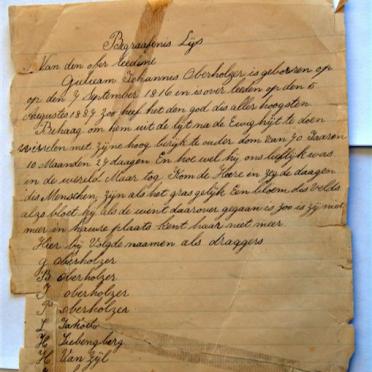 Begraafenes Lÿs
Van den ofer leedene
Guilliam Johannes Oberholzer is geborsen op
op den 7 September 1816 en is over leeden op den 6
Augustes 1887 zoo heeft het den god des aller hoogsten
Behaag om hem uit de tyt na de Ewighÿt te doen
verwisselen met zÿne hoog berÿkte ouder dom van 70 Jaaren
10 Maanden 29 daagen En hoe wel hÿ ons lieflÿk was
in de wereld Maar tog kom de Heere en zeg de daagen
des Menschen zÿn als het gras gelÿk Een bloem des velds
alzo bloet hÿ als de wint daarover gegaan is zoo is zÿ niet
meer en haare plaats kent haar niet meer
Hier bÿ Volgde naamen als draggers
G Oberholzer
B Oberholzer
J Oberholzer
P Oberholzer
L
H Liebengberg
H Van Zÿl